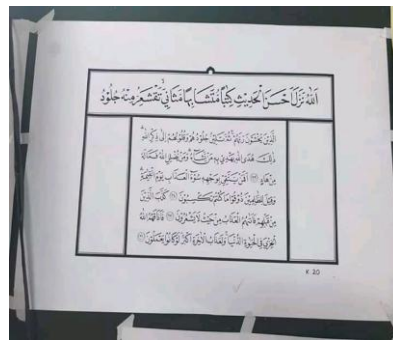 الله نزل احسن الحديث كتبا متشابها مثاني تقشعر منه جلود
الذين يخشون ربهم ثم تلين جلودهم وقلوبهم الى ذكر الله
ذلك هدى الله يهدي به من يشاء ومن يضلل الله فما له
من هاد ٢٣ افمن يتقي بوجهه سوء العذاب يوم القيمة
وقيل للظلمين ذوقوا ما كنتم تكسبون ٢٤ كذب الذين
من قبلهم فاتىهم العذاب من حيث لا يشعرون ٢٥ فاذاقهم الله
الخزي في الحيوة الدنيا ولعذاب الاخرة اكبر لو كانوا يعلمون ٢٦